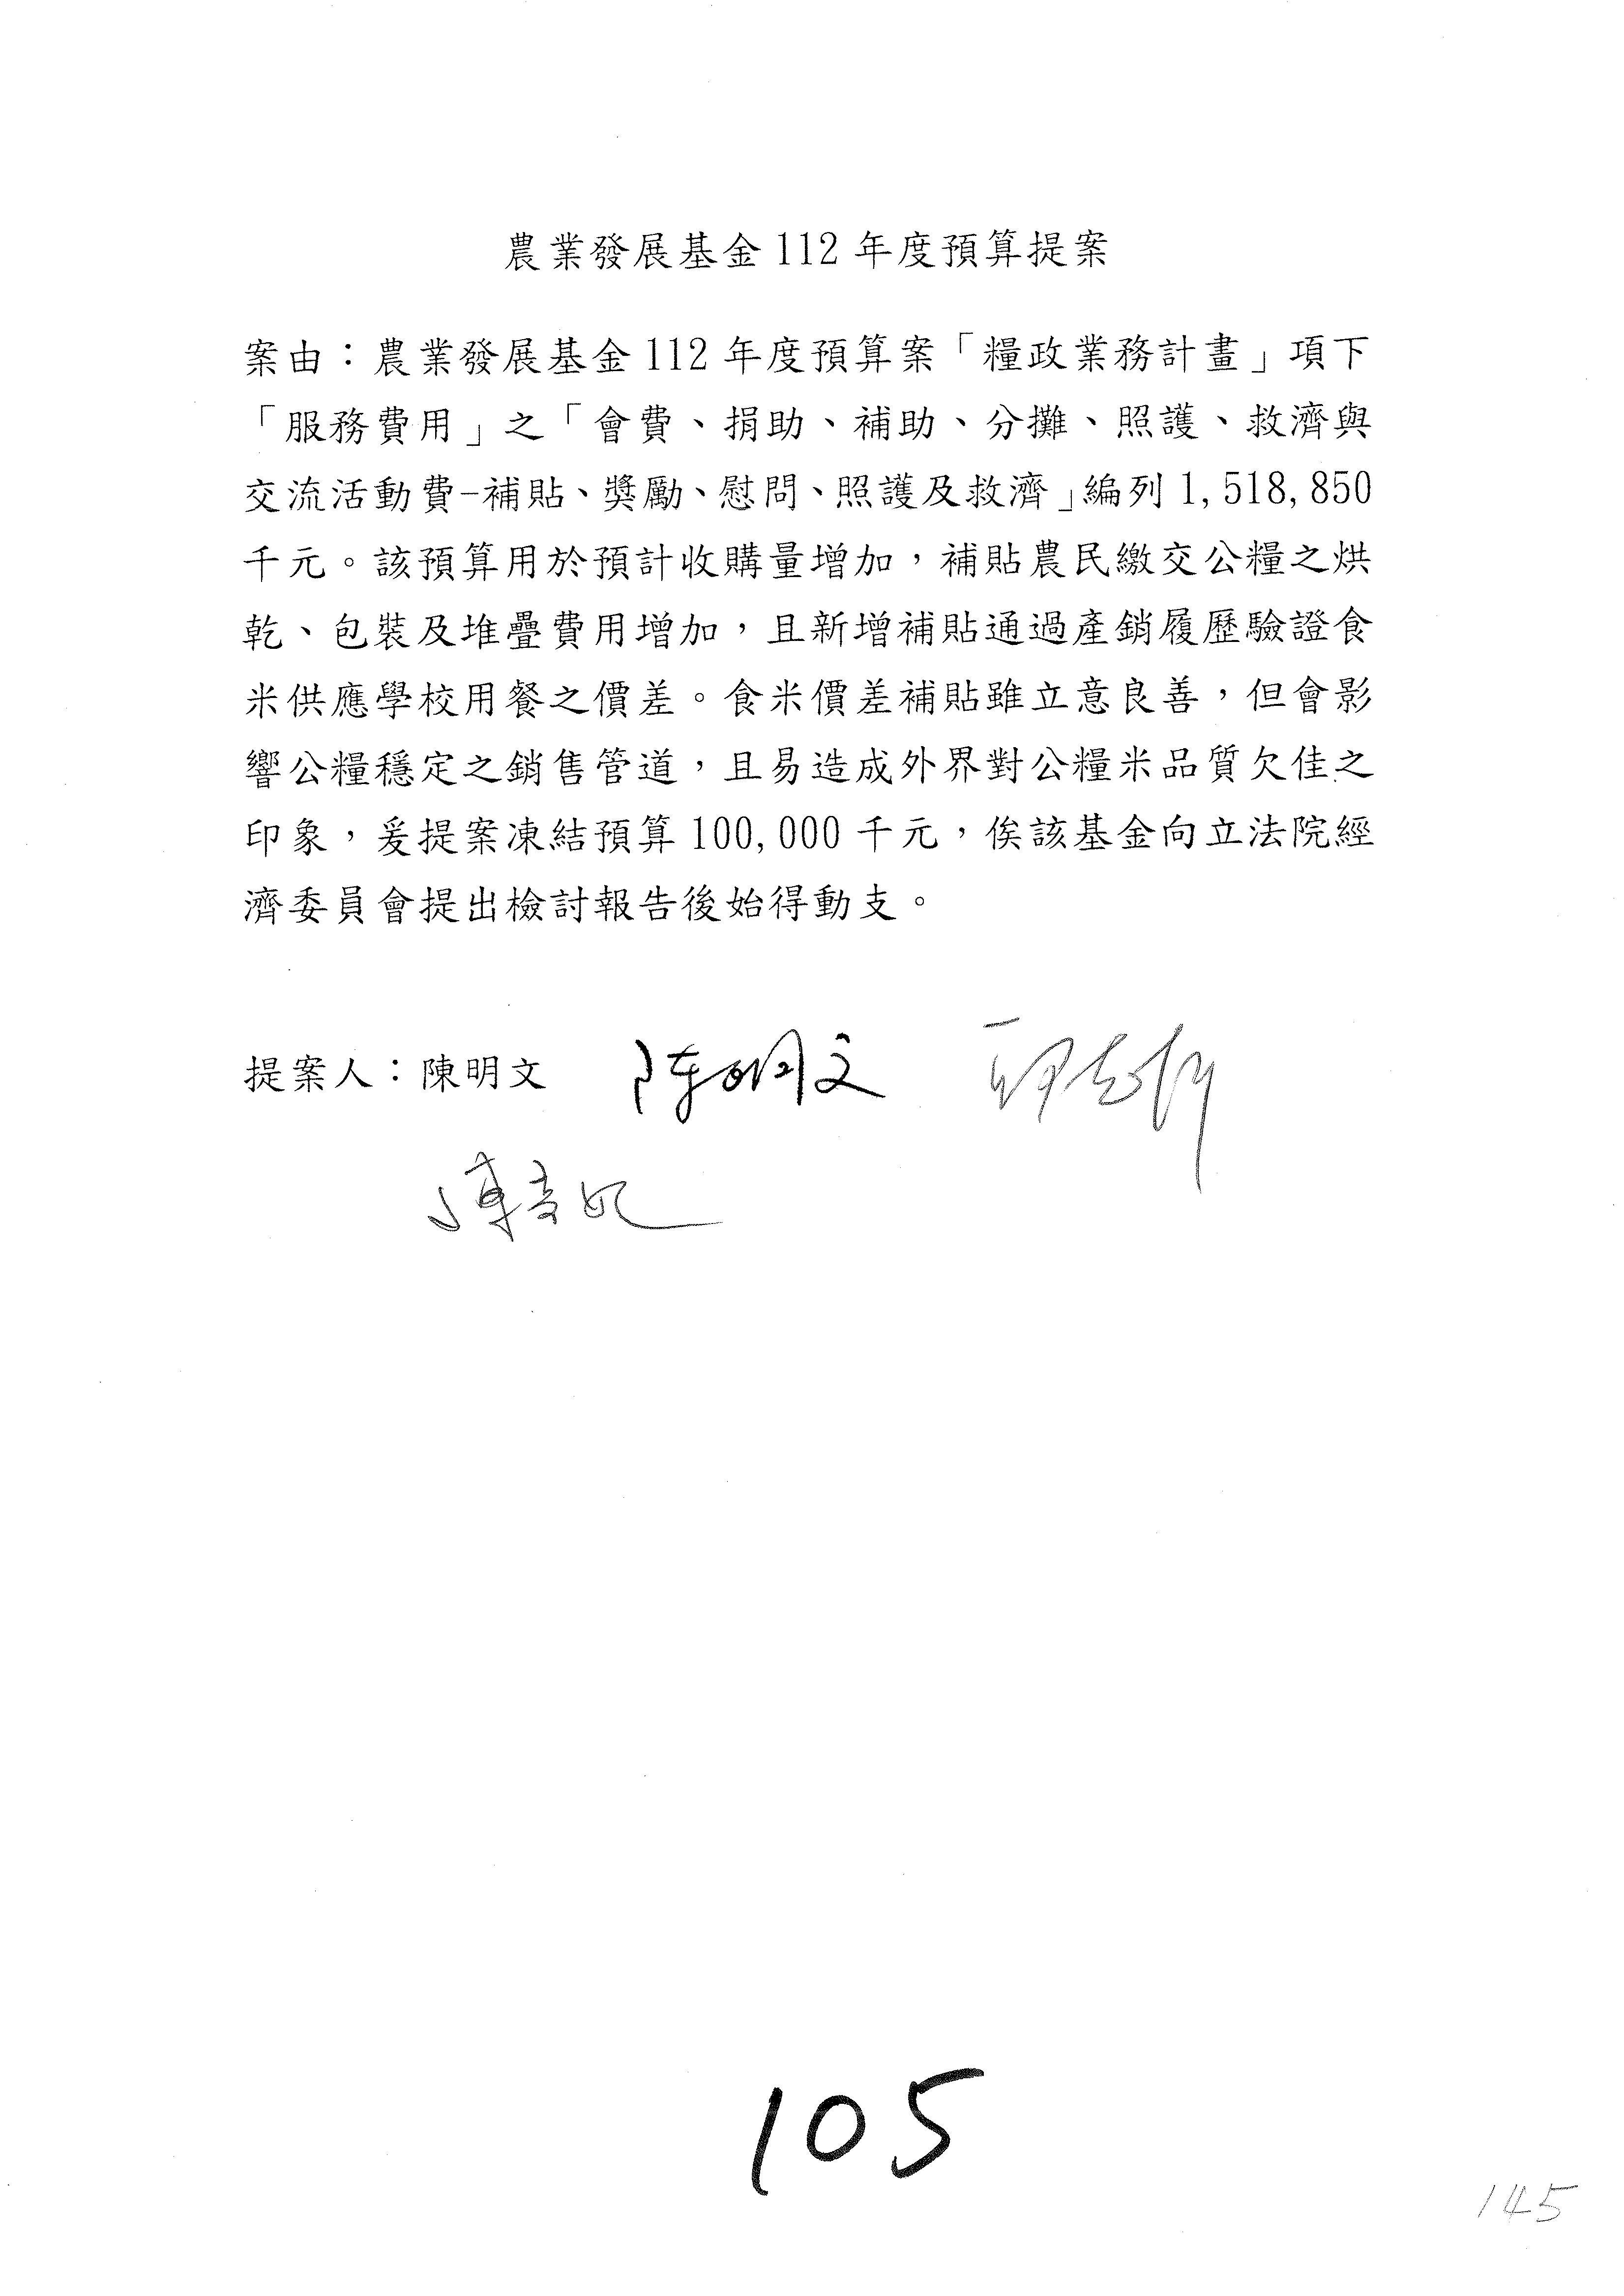 農業發展基金112年度預算提案
案由：農業發展基金112年度預算案「糧政業務計畫」項下
「服務費用」之「會費、捐助、補助、分攤、照護、救濟與
交流活動費-補貼、獎勵、慰問、照護及救濟」編列1,518,850
千元。該預算用於預計收購量增加，補貼農民繳交公糧之烘
乾、包裝及堆疊費用增加，且新增補貼通過產銷履歷驗證食
米供應學校用餐之價差。食米價差補貼雖立意良善，但會影
響公糧穩定之銷售管道，且易造成外界對公糧米品質欠佳之
印象，爰提案凍結預算100,000千元，俟該基金向立法院經
濟委員會提出檢討報告後始得動支。
提案人：陳明文 陈明文
105
145